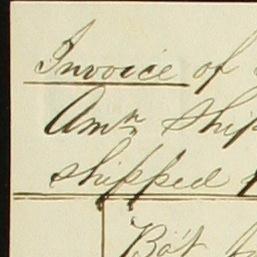 Invoice of
Amn Ship
shipped
Bo't